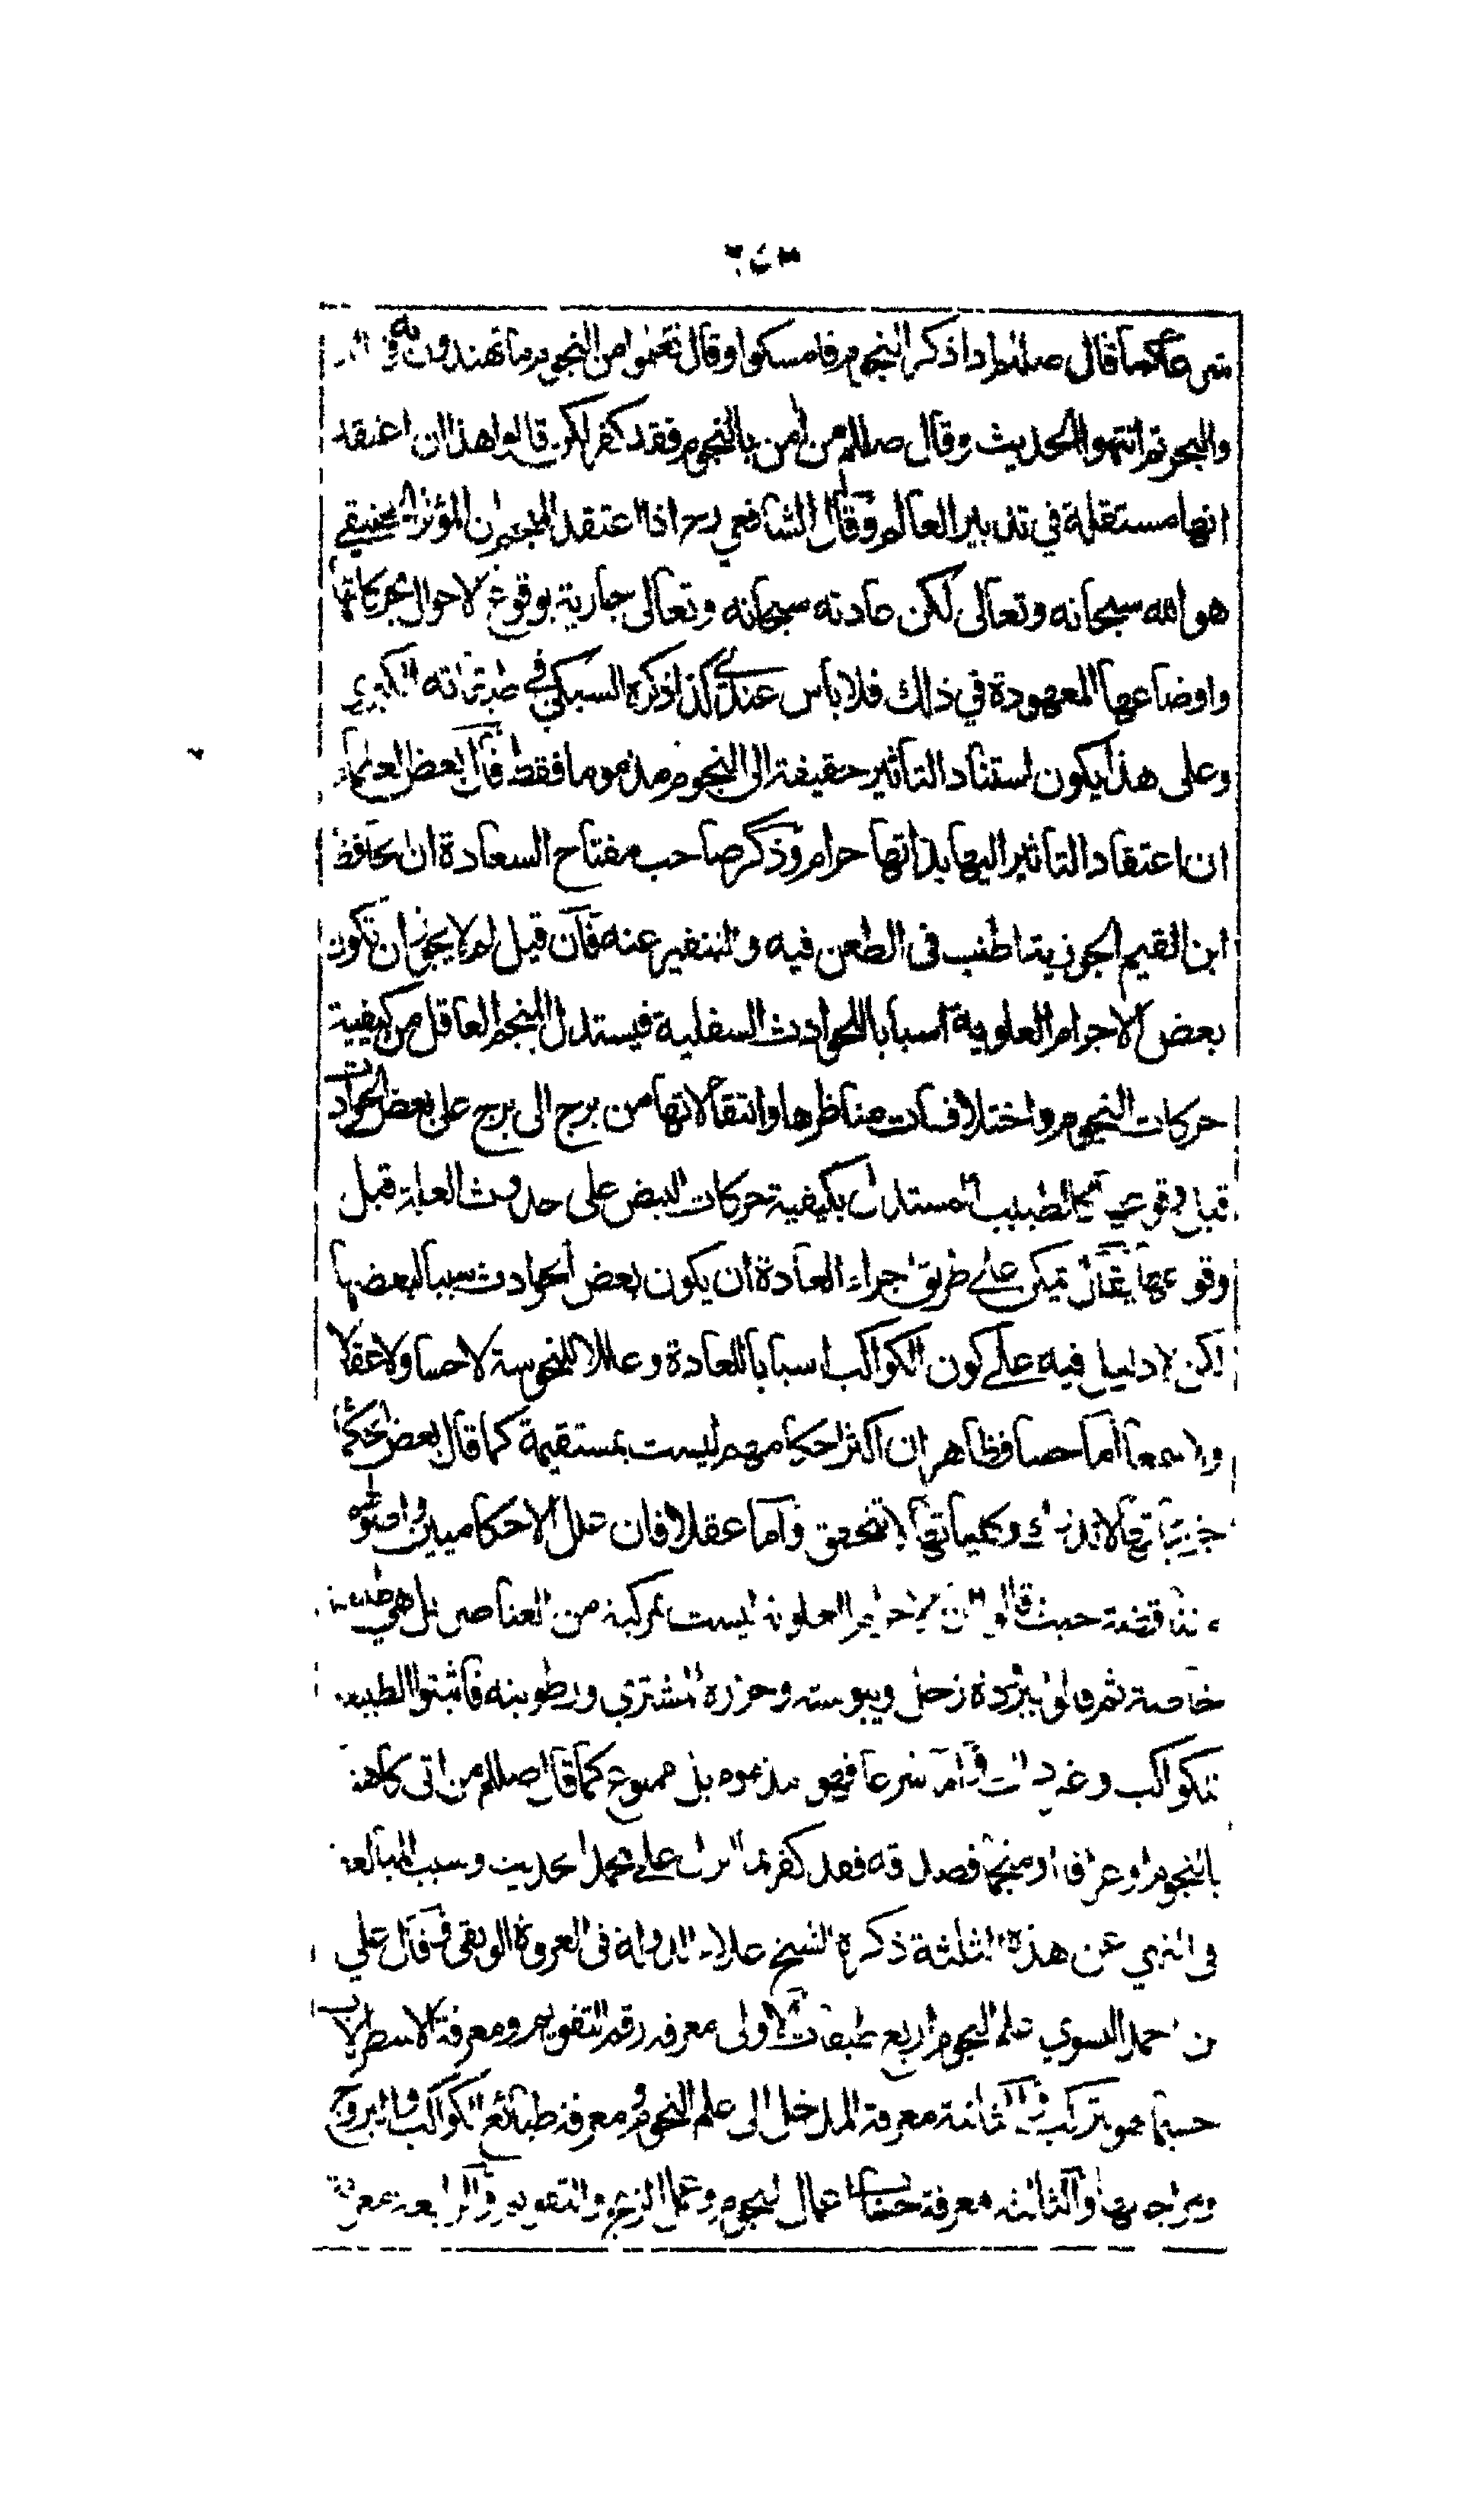 شرعا كما قال صللم اذا ذكر النجوم فامسكوا وقال تعلموا من النجوم ما تهتدون به في البر
والبحر ثم انتهوا الحديث وقال صللم من امن بالنجوم فقد كفر لكن قالوا هذا ان اعتقد
انها مستقلة في تدبير العالم وقال الشافعي رح اذا اعتقد المنجم ان المؤثر الحقيقي
هو الله سبحانه وتعالى لكن عادته سبحانه وتعالى جارية بوقوع الاحوال بحركاتها
واوضاعها المعهودة في ذلك فلا باس عندي كذا ذكره السبكي في طبقاته الكبرى
وعلى هذا يكون استناد التاثير حقيقة الى النجوم مذموما فقط قال بعض العلماء
ان اعتقاد التاثير اليها بذاتها حرام وذكر صاحب مفتاح السعادة ان الحافظ
ابن القيم الجوزية اطنب في الطعن فيه والتنفير عنه فان قيل لم لا يجوز ان تكون
بعض الاجرام العلوية اسبابا للحوادث السفلية فيستدل المنجم العاقل من كيفية
حركات النجوم واختلافات مناظرها وانتقالاتها من برج الى برج على بعض الحوادث
قبل وقوعها كما الطبيب المستدل بكيفية حركات النبض على حدوث العلة قبل
وقوعها يقال يمكن على طريق اجراء العادة ان يكون بعض الحوادث سببا لبعضها
لكن لا دليل فيه على كون الكواكب اسبابا للعادة وعللا للنحوسة لا حسا ولا عقلا
ولا سمعا اما حسا فظاهر ان اكثر احكامهم ليست بمستقيمة كما قال بعض الحكماء
جزئياتها لا تدرك وكلياتها لا تتحقق واما عقلا فان علل الاحكاميين واصولهم
متناقضة حيث قالوا ان الاجرام العلوية ليست بمركبة من العناصر بل هي طبيعة
خاصة ثم قالوا ببرودة زحل ويبوسته وحرارة المشتري ورطوبته فاثبتوا الطبيعة
للكواكب وغير ذلك واما شرعا فهو مذموم بل ممنوع كما قال صللم من اتى كاهنا
بالنجوم او عرافا او منجما فصدقه فقد كفر بما انزل على محمد الحديث وسبب المبالغة
في النهي عن هذه الثلثة ذكره الشيخ علاء الدولة في العروة الوثقى وقال علي
بن احمد النسوي علم النجوم اربع طبقات الاولى معرفة رقم التقويم ومعرفة الاسطرلاب
حسبما هو يتركب والثانية معرفة المدخل الى علم النجوم ومعرفة طبائع الكواكب والبروج
ومزاجاتها والثالثة معرفة حساب اعمال النجوم وعمل الزيج والتقويم والرابعة معرفة